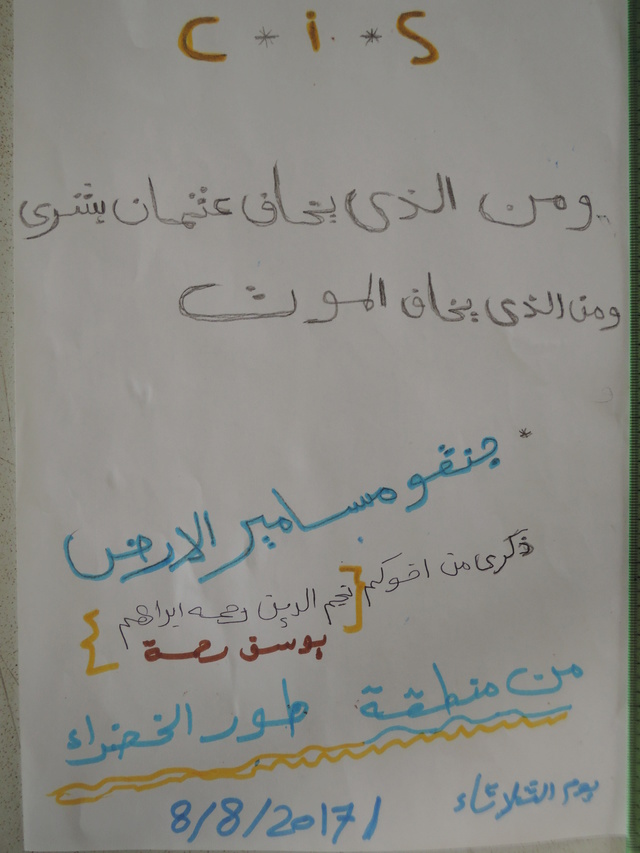 C * i * S
..ومن الذي يخاف عثمان بشرى
ومن الذي يخاف الموت
* جنقو مسامير الارض
ذكرى من اخوكم { نجم الدين رحمه ابراهم }
يوسق رحمة
من منطقة طور الخضراء
يوم الثلاثاء
8/8/2017/